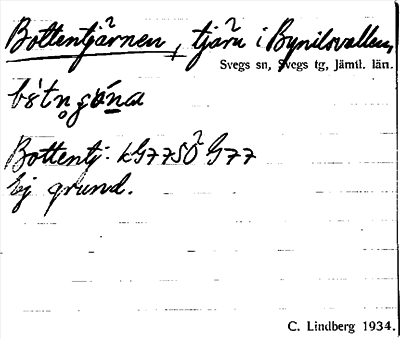 Bottentjärnen, tjärn i Bynilsvallen,
Svegs sn, Svegs tg, Jämtl. län.
Bottentj.
Ej grund.
C. Lindberg 1934.